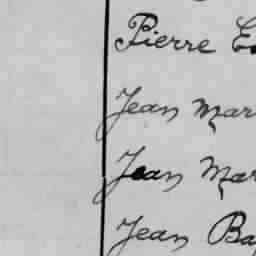 Pierre E
Jean Mar
Jean Mar
Jean Ba